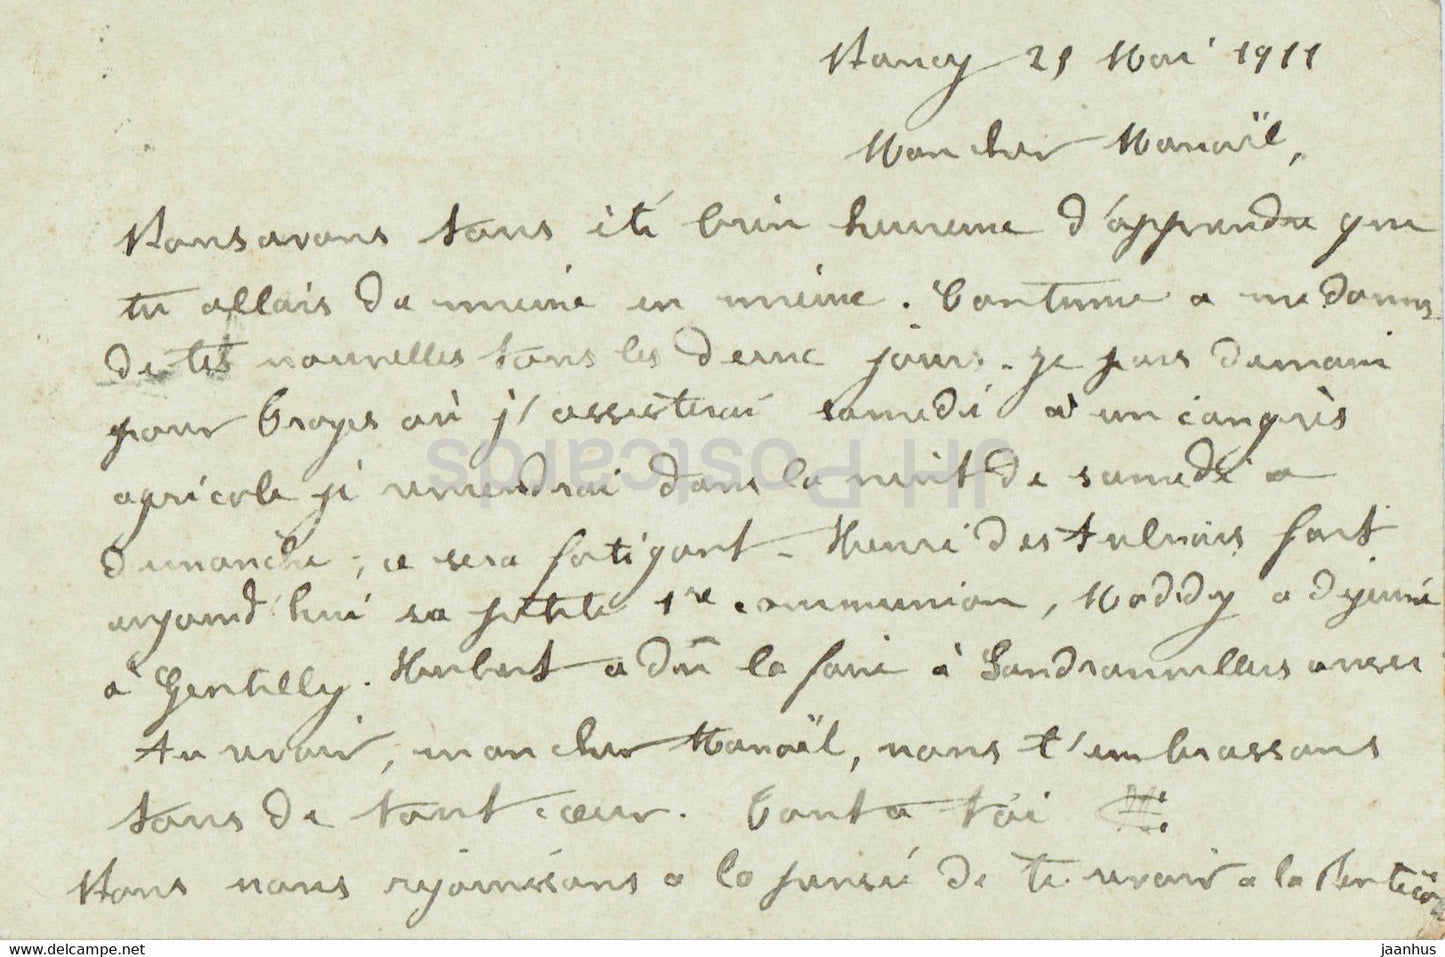 Nancy 25 Mai 1911
Mon cher Manoël,
Nous avons tous été bien heureux d'apprendre que
tu allais de mieux en mieux. Continue a me donner
de tes nouvelles tous les deux jours. je pars demain
pour Broyes où j'assisterai samedi à un congrès
agricole je reviendrai dans la nuit de samedi a
dimanche, ce sera fatigant - Henri des Aulnois fait
aujourd'hui sa petite 1re communion, Maddy a déjeuné
à Gentilly. Herbert a dû la faire à Landrauvillers
Au revoir, mon cher Manoël, nous t'embrassons
tous de tout cœur. Tout a toi
Nous nous réjouissons a la pensée de te revoir a la Pentecôte
JH Postcards
hipstamp - delcampe.net
jaanhus